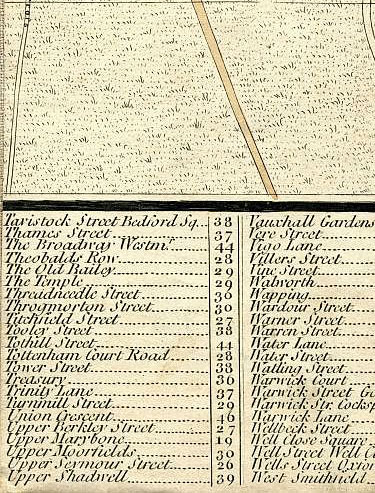 Tavistock Street Bedford Sq. 38
Thames Street 37
The Broadway Westmr. 44
Theobalds Row 28
The Old Bailey 29
The Temple 29
Threadneedle Street 30
Throgmorton Street 30
Titchfield Street 27
Tooley Street 38
Tothill Street 44
Tottenham Court Road 28
Tower Street 38
Treasury 36
Trinity Lane 37
Turnmill Street 29
Union Crescent 46
Upper Berkley Street 27
Upper Marybone 19
Upper Moorfields 30
Upper Seymour Street 26
Upper Shadwell 39
Vauxhall Gardens
Vere Street
Vigo Lane
Villers Street
Vine Street
Walworth
Wapping
Wardour Street
Warner Street
Warren Street
Water Lane
Water Street
Watling Street
Warwick Court
Warwick Street Go
Warwick Str. Cocksp
Warwick Lane
Welbeck Street
Well Close Square
Well Street Well Cl
Wells Street Oxfor
West Smithfield